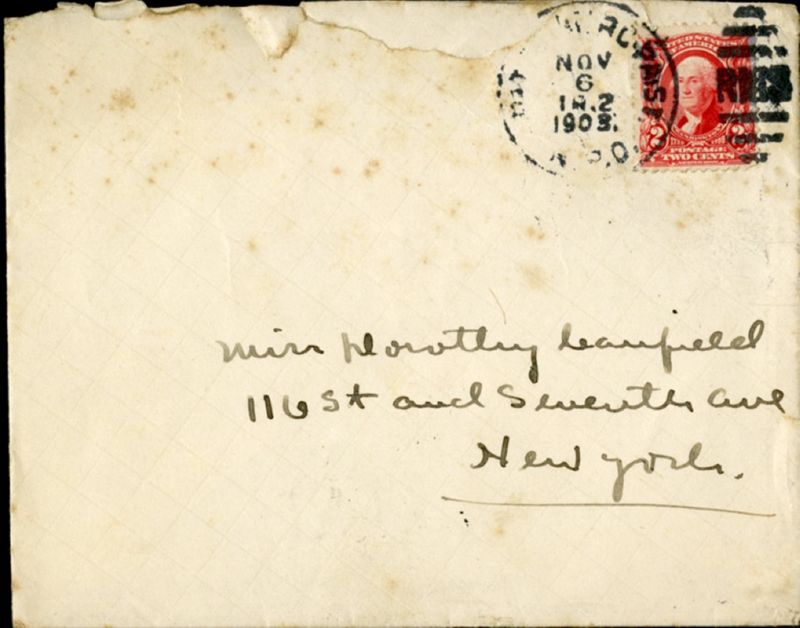 NOV
6
1903.
UNITED STATES
OF AMERICA
2 2
POSTAGE
TWO CENTS
Miss Dorothy Canfield
116 St and Seventh Ave
New York.